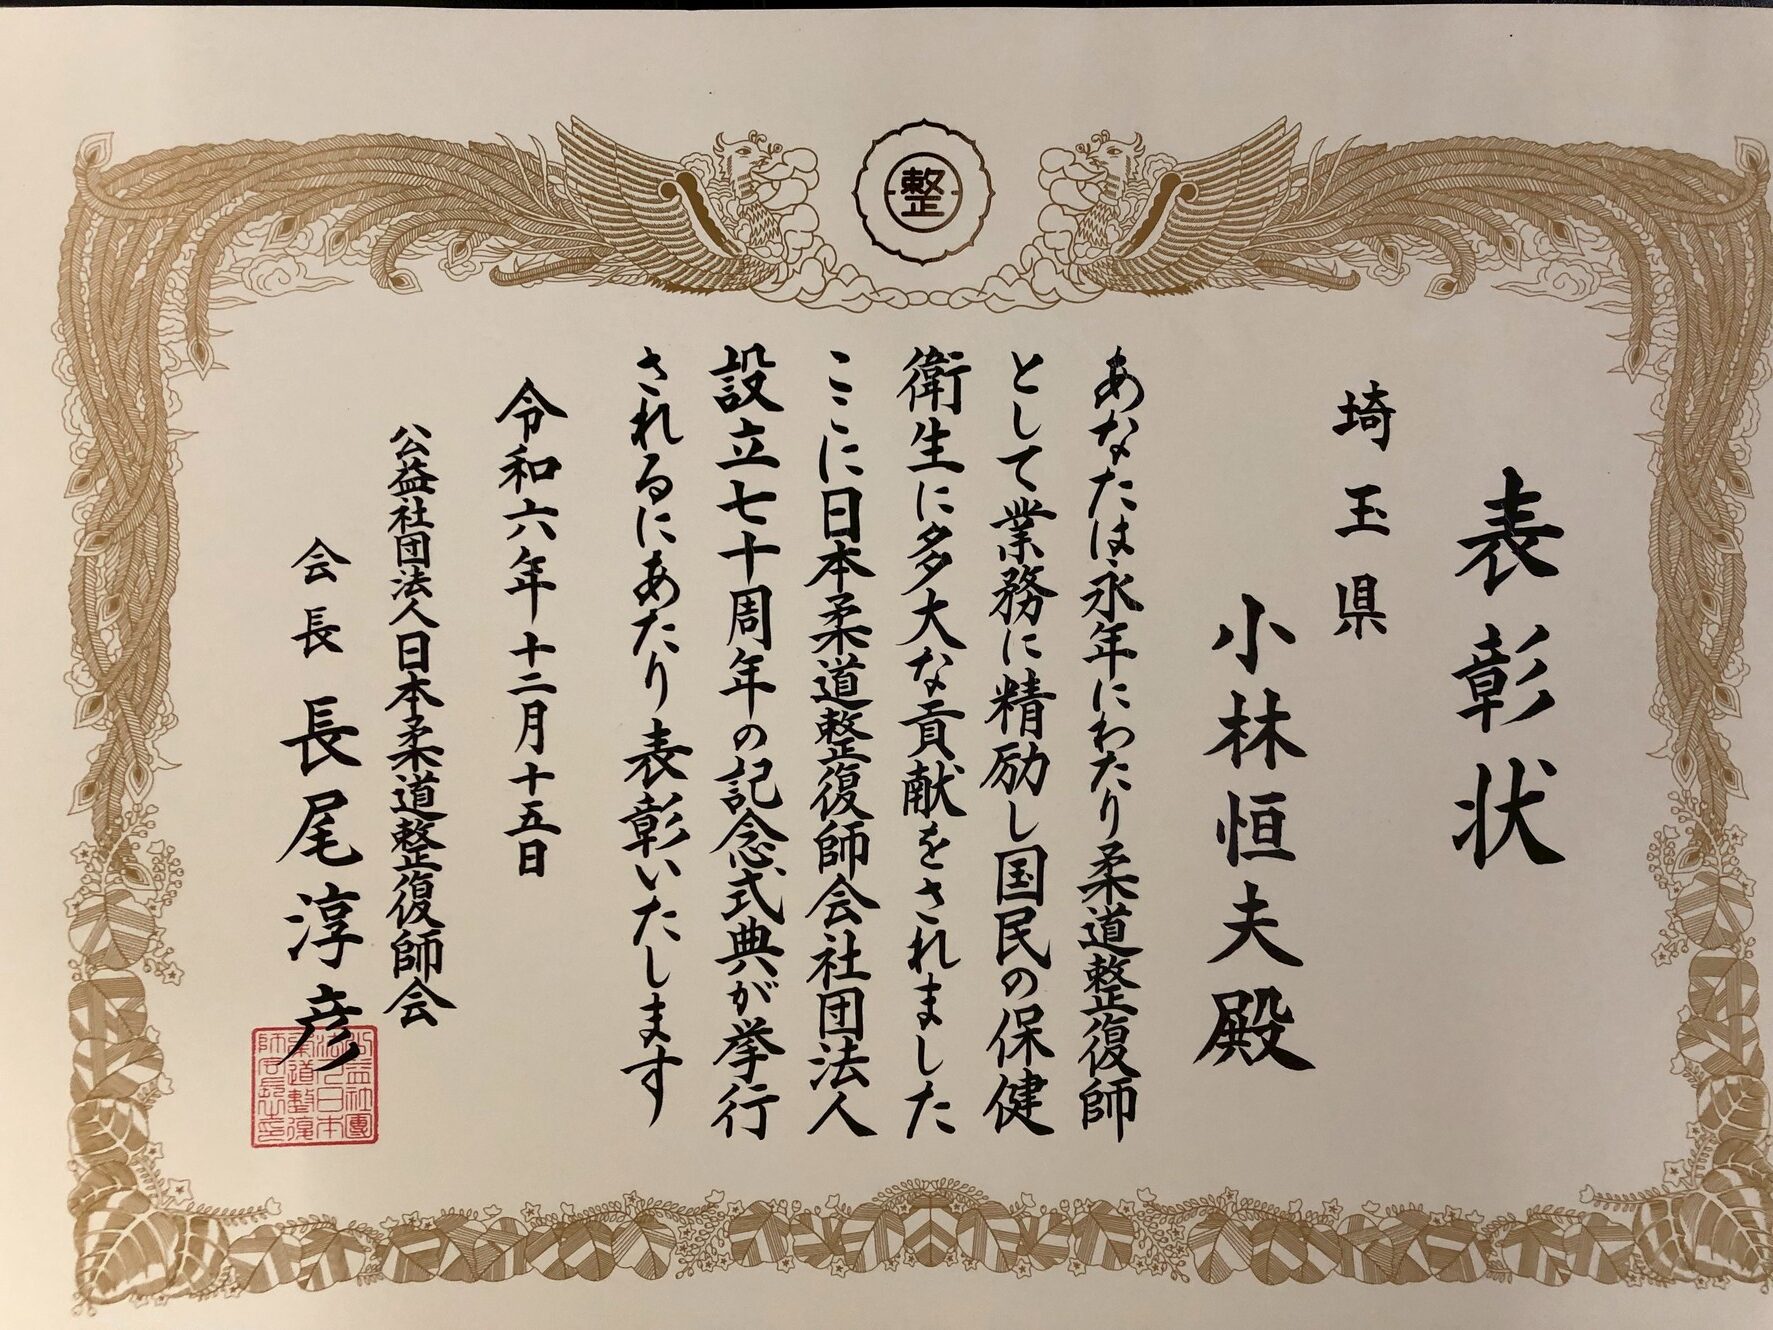 整
表彰状
埼玉県
小林恒夫殿
あなたは永年にわたり柔道整復師
として業務に精励し国民の保健
衛生に多大な貢献をされました
ここに日本柔道整復師会社団法人
設立七十周年の記念式典が挙行
されるにあたり表彰いたします
令和六年十二月十五日
公益社団法人日本柔道整復師会
会長 長尾淳彦
公益社團
法人日本
柔道整復
師会長之印